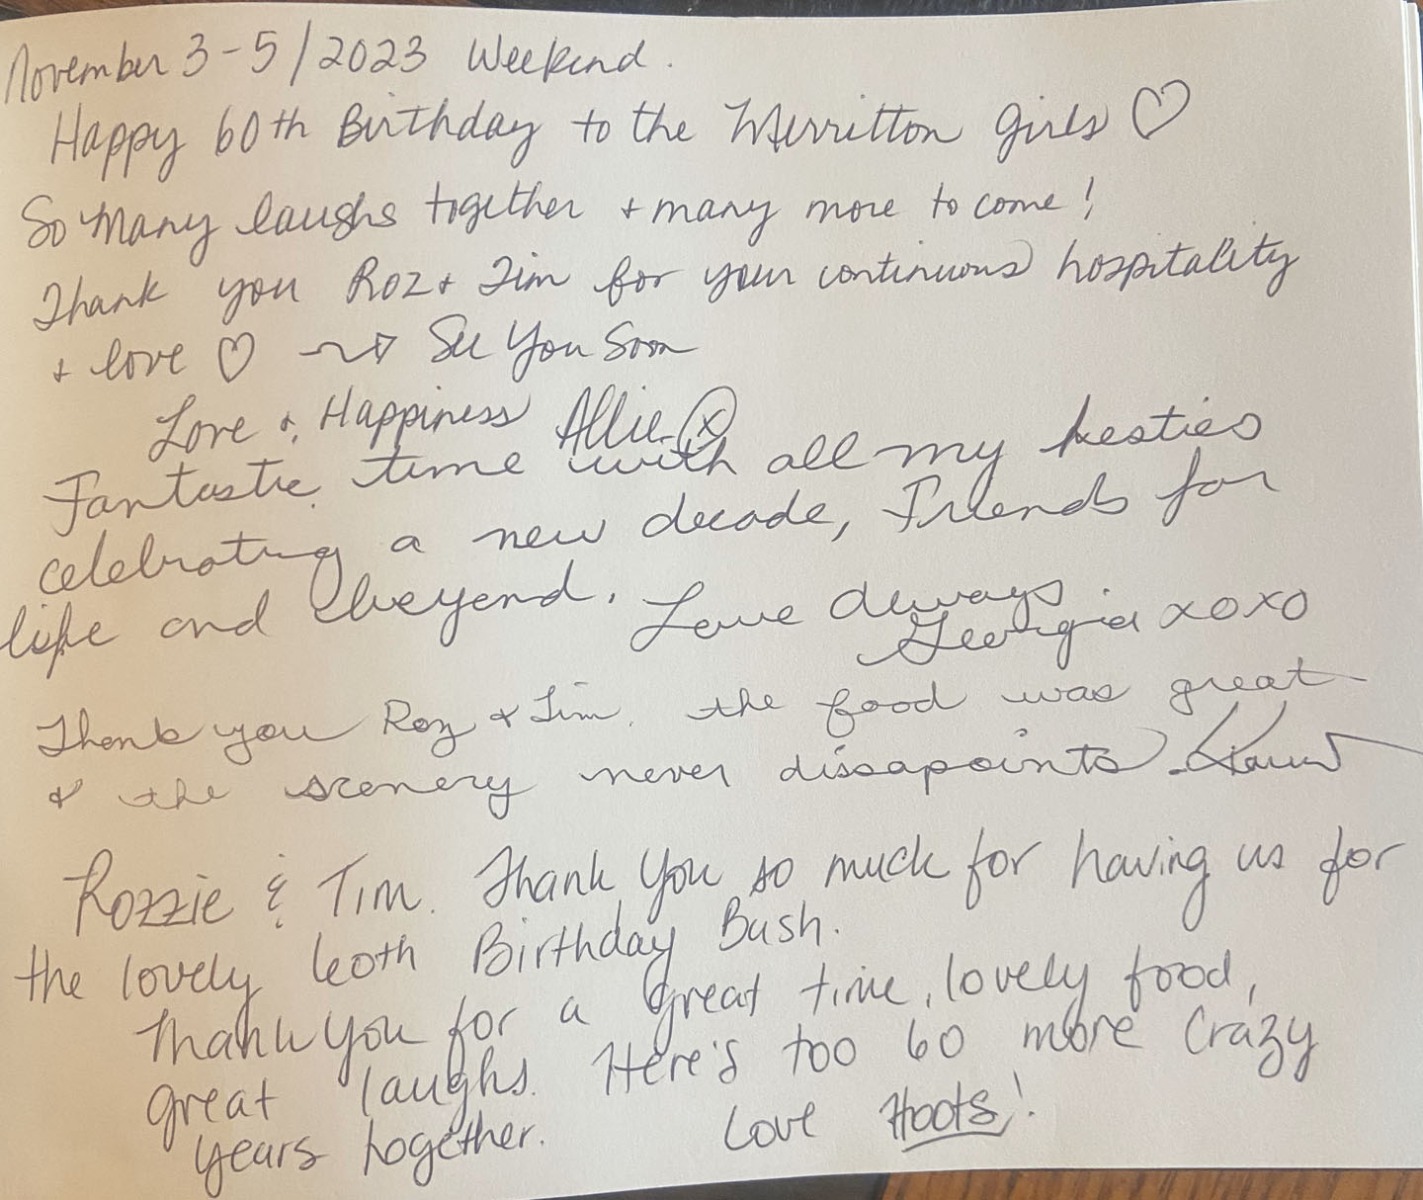 November 3-5/2023 Weekend.
Happy 60th Birthday to the Merritton Girls ♡
So Many laughs together + many more to come!
Thank you Roz + Tim for your continuous hospitality
+ love ♡ See You Soon
Love + Happiness Allie x
Fantastic time with all my besties
celebrating a new decade, Friends for
life and beyend. Love always
Georgia xoxo
Thank you Roz & Tim. the food was great
& the scenery never dissapoints -
Rozzie & Tim. Thank You so much for having us for
the lovely 60th Birthday Bash.
Thank you for a great time, lovely food,
great laughs. Here's too 60 more Crazy
years together. Love Hoots!